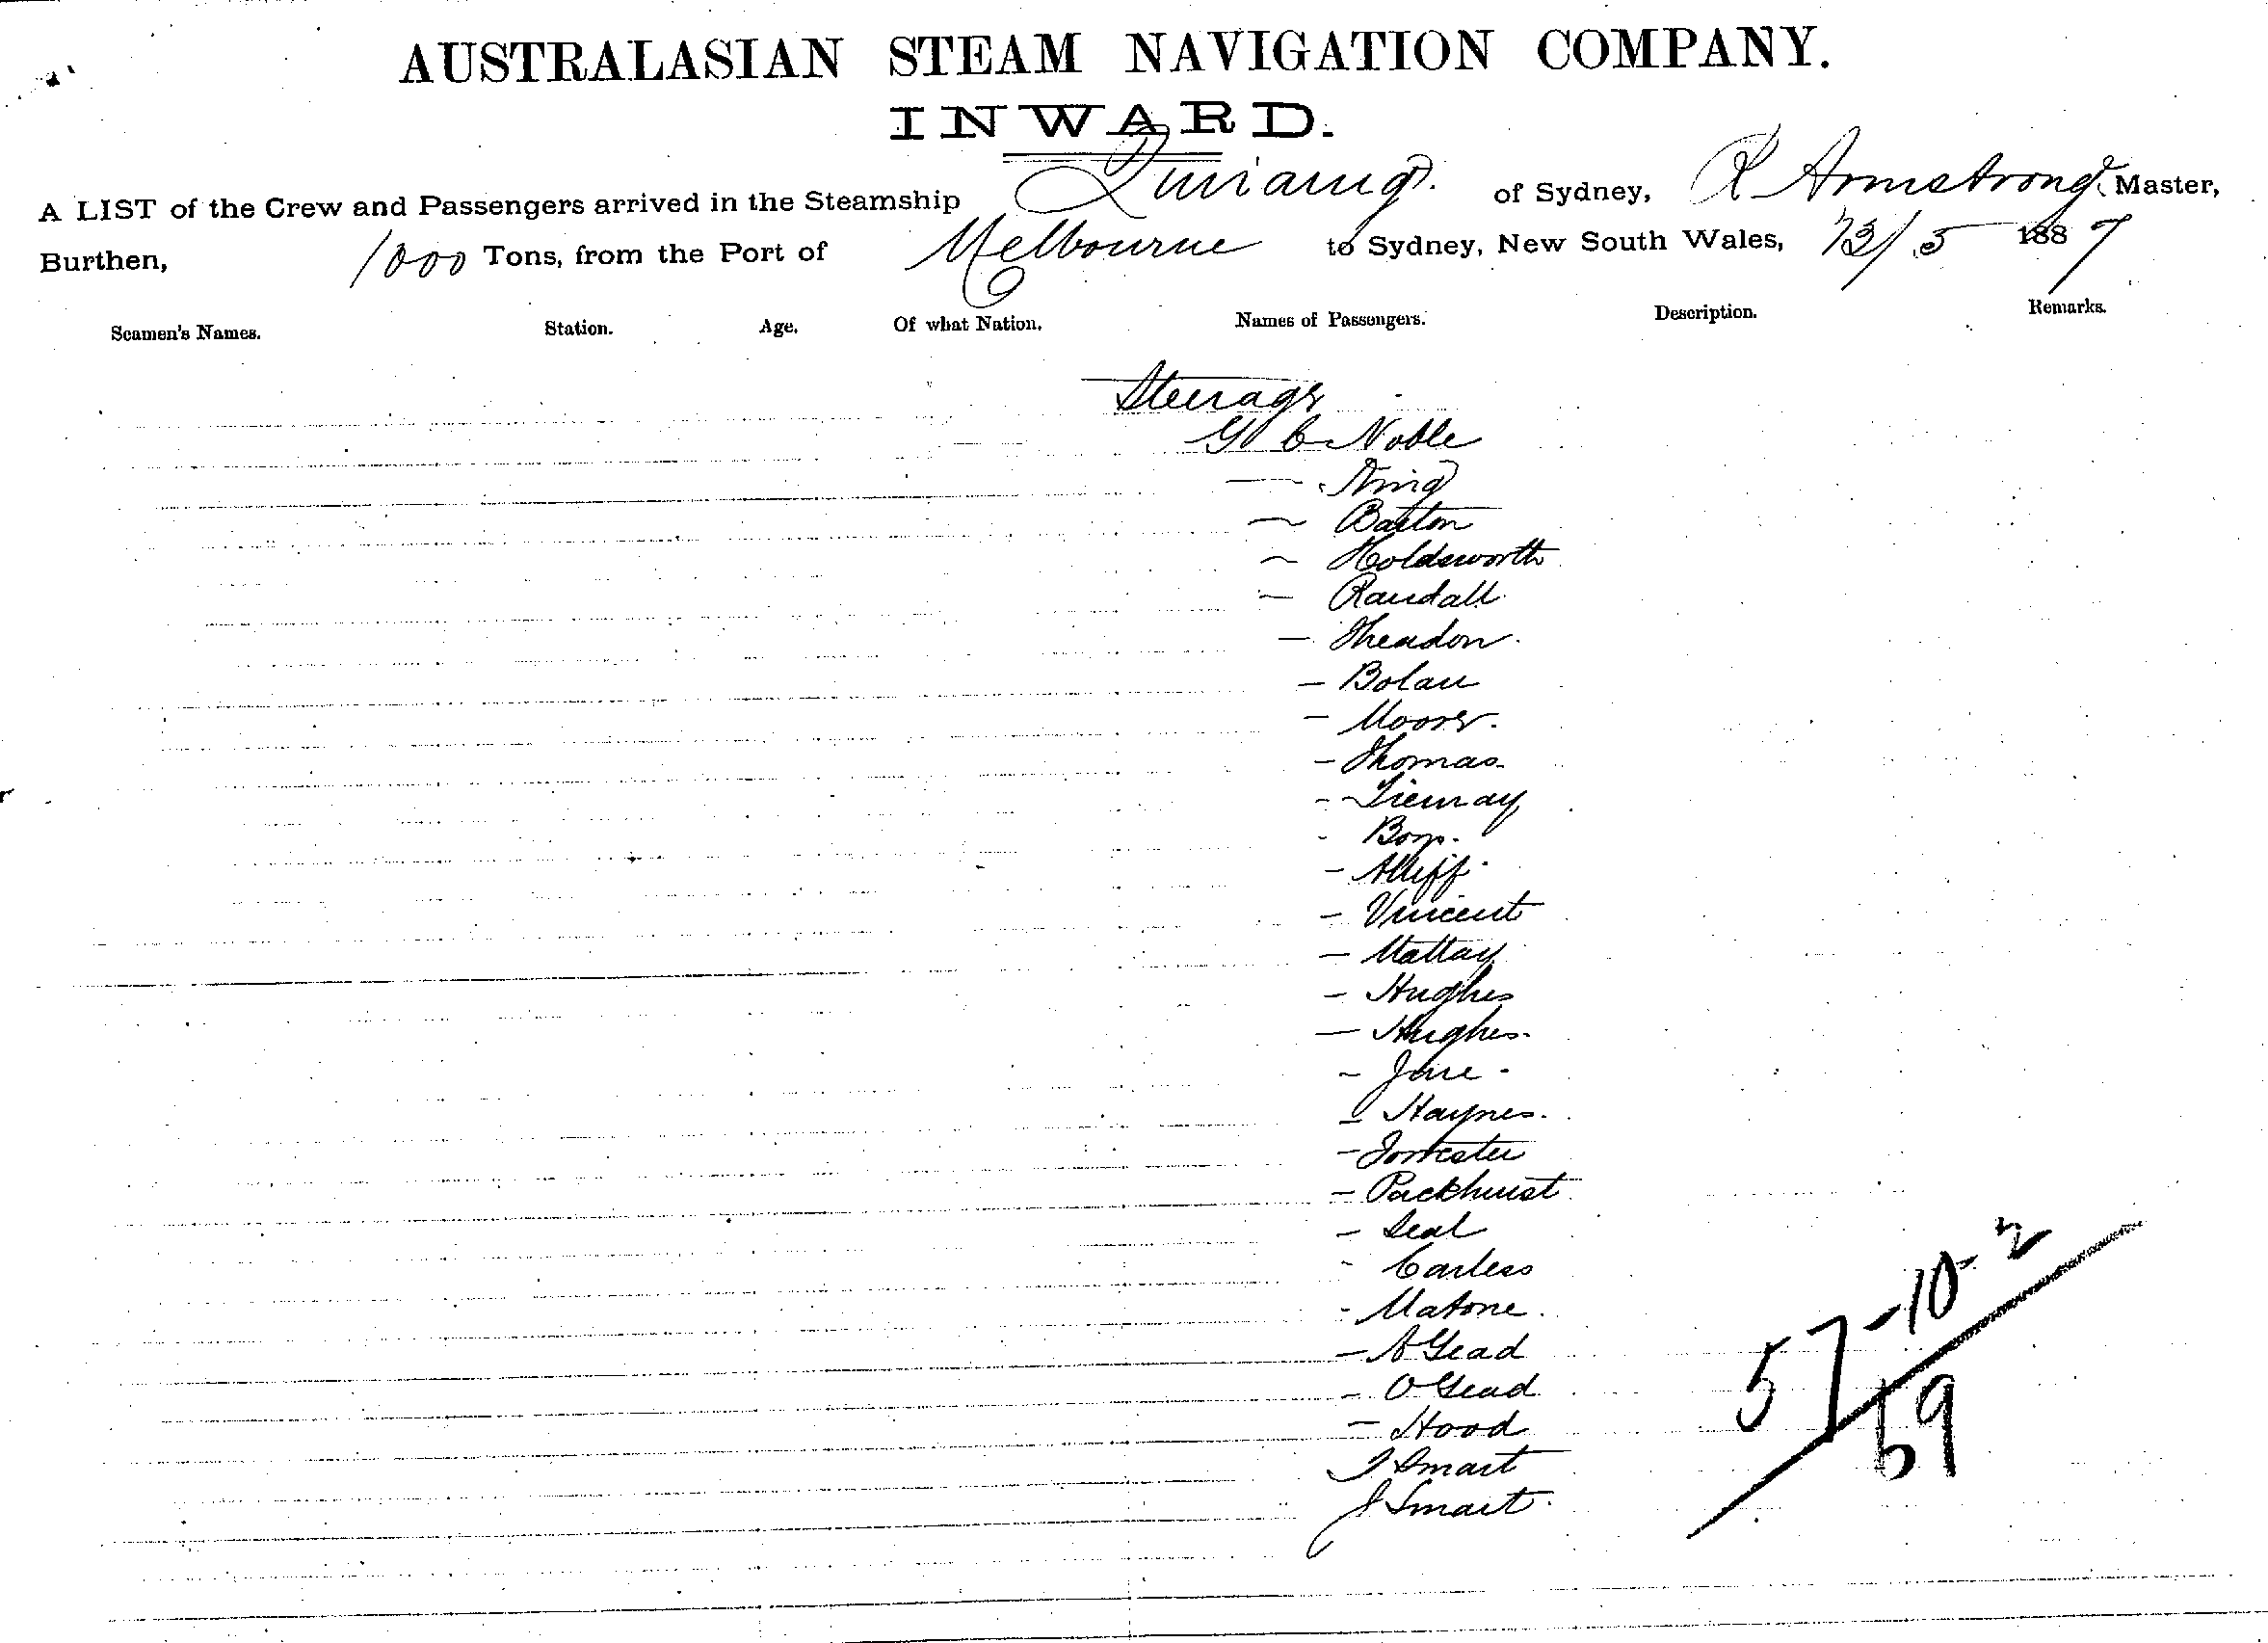 AUSTRALASIAN STEAM NAVIGATION COMPANY.
INWARD.
A LIST of the Crew and Passengers arrived in the Steamship of Sydney, R Armstrong Master,
Burthen, 1000 Tons, from the Port of Melbourne to Sydney, New South Wales, 13/5 1887
Seamen's Names. Station. Age. Of what Nation. Names of Passengers. Description. Remarks.
Steerage
G C Noble
— King
— Barton
— Holdsworth
— Randall
— Theadon.
— Bolan
— Moore.
— Thomas
- Tiernay
-
-
— Vincent
— Mattay
— Hughes
— Hughes.
- Jane -
- Haynes.
- Forrester
- Packhurst
- Seal
- Carless
- Malone.
- A Gead
- O Gead
- Hood
T Smart
J Smart.
57-10-2
69